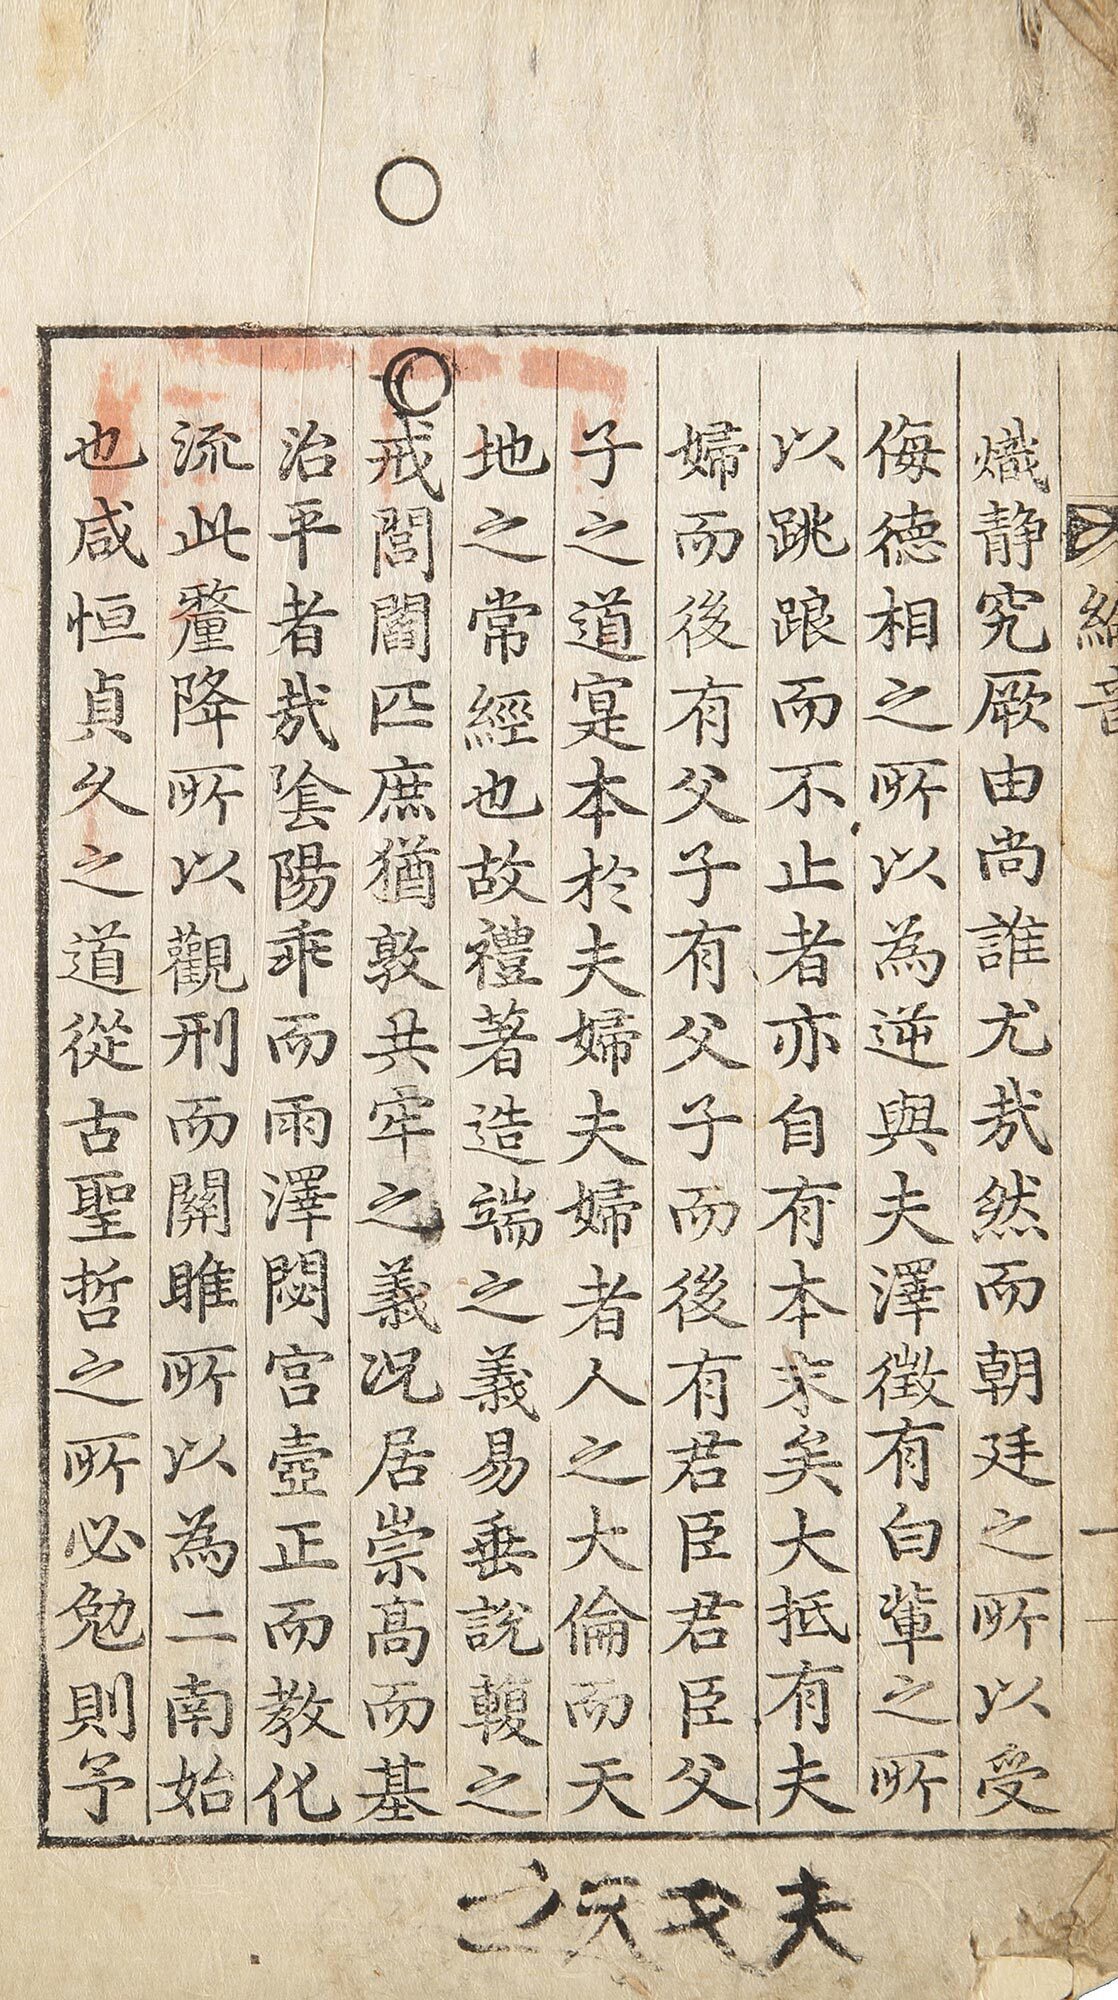 綸音
一
熾静究厥由尚誰尤㢤然而朝廷之所以受
侮德相之所以為逆與夫澤徵有白輩之所
以跳踉而不止者亦自有本末矣大抵有夫
婦而後有父子有父子而後有君臣君臣父
子之道寔本於夫婦夫婦者人之大倫而天
地之常經也故禮著造端之義易垂說輹之
戒閭閻匹庶猶敦共牢之義况居崇高而基
治平者㢤陰陽乖而雨澤閟宮壼正而教化
流此釐降所以觀刑而關雎所以為二南始
也咸恒貞久之道從古聖哲之所必勉則予
夫父天之